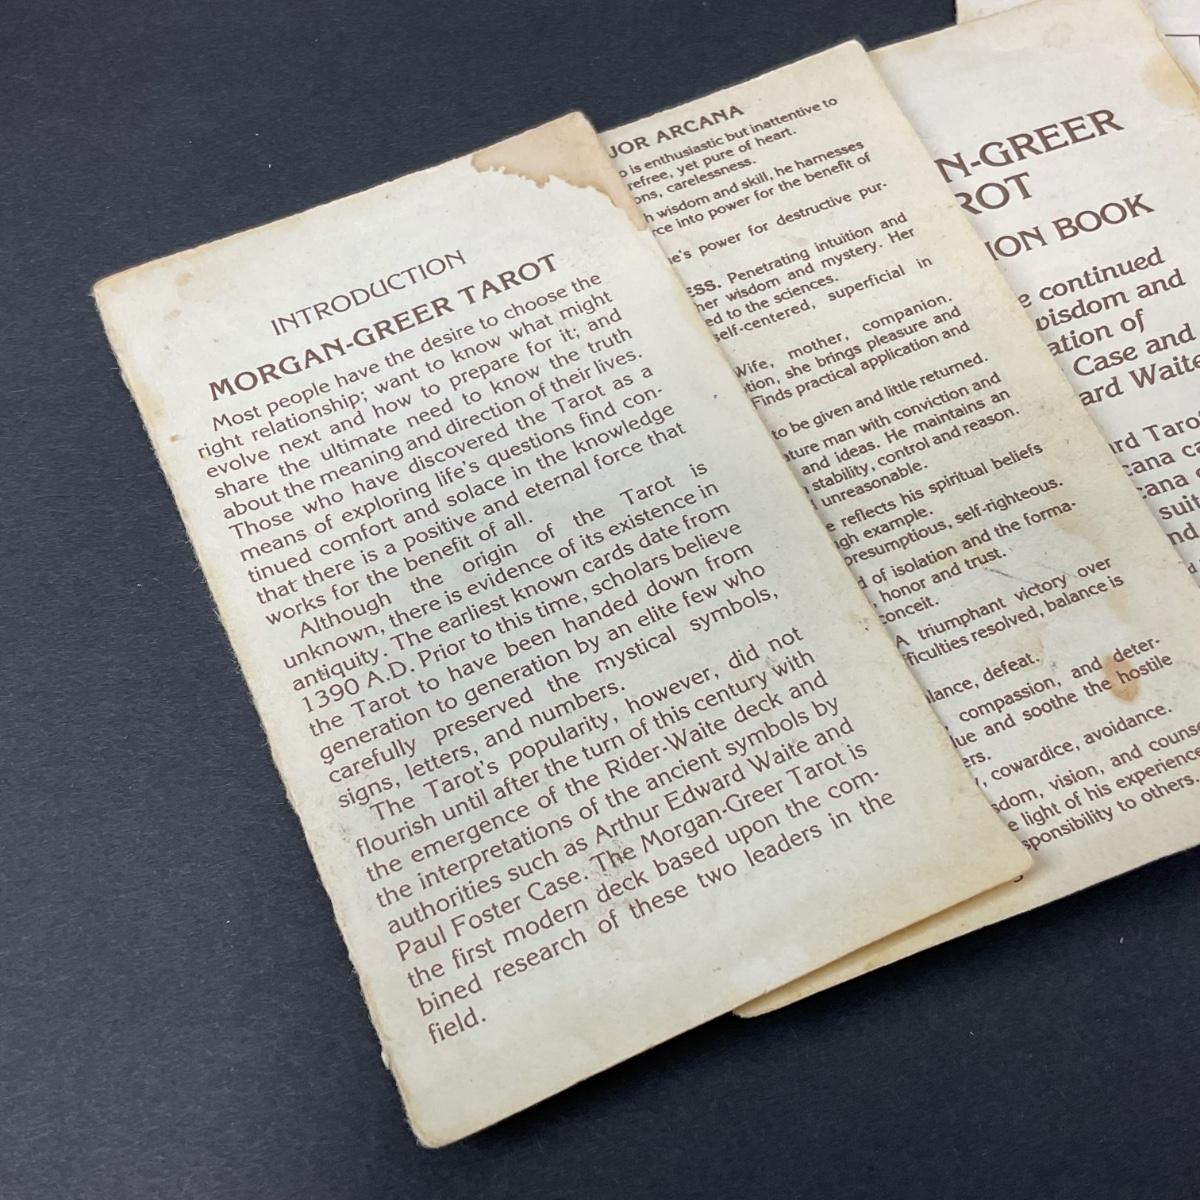 INTRODUCTION
MORGAN-GREER TAROT
Most people have the desire to choose the
right relationship; want to know what might
evolve next and how to prepare for it; and
share the ultimate need to know the truth
about the meaning and direction of their lives.
Those who have discovered the Tarot as a
means of exploring life's questions find con-
tinued comfort and solace in the knowledge
that there is a positive and eternal force that
works for the benefit of all.
Although the origin of the Tarot is
unknown, there is evidence of its existence in
antiquity. The earliest known cards date from
1390 A.D. Prior to this time, scholars believe
the Tarot to have been handed down from
generation to generation by an elite few who
carefully preserved the mystical symbols,
signs, letters, and numbers.
The Tarot's popularity, however, did not
flourish until after the turn of this century with
the emergence of the Rider-Waite deck and
the interpretations of the ancient symbols by
authorities such as Arthur Edward Waite and
Paul Foster Case. The Morgan-Greer Tarot is
the first modern deck based upon the com-
bined research of these two leaders in the
field.
JOR ARCANA
is enthusiastic but inattentive to
refree, yet pure of heart.
ons, carelessness.
h wisdom and skill, he harnesses
rce into power for the benefit of
e's power for destructive pur-
ESS. Penetrating intuition and
her wisdom and mystery. Her
ed to the sciences.
self-centered, superficial in
Wife, mother, companion.
tion, she brings pleasure and
Finds practical application and
to be given and little returned.
ture man with conviction and
and ideas. He maintains an
stability, control and reason.
unreasonable.
e reflects his spiritual beliefs
gh example.
presumptious, self-righteous.
d of isolation and the forma-
, honor and trust.
conceit.
A triumphant victory over
fficulties resolved, balance is
lance, defeat.
compassion, and deter-
ue and soothe the hostile
ers.
, cowardice, avoidance.
sdom, vision, and counse
e light of his experience
sponsibility to others.
N-GREER
ROT
ION BOOK
e continued
wisdom and
ation of
Case and
ard Waite
rd Taro
cana ca
cana
suit
nd